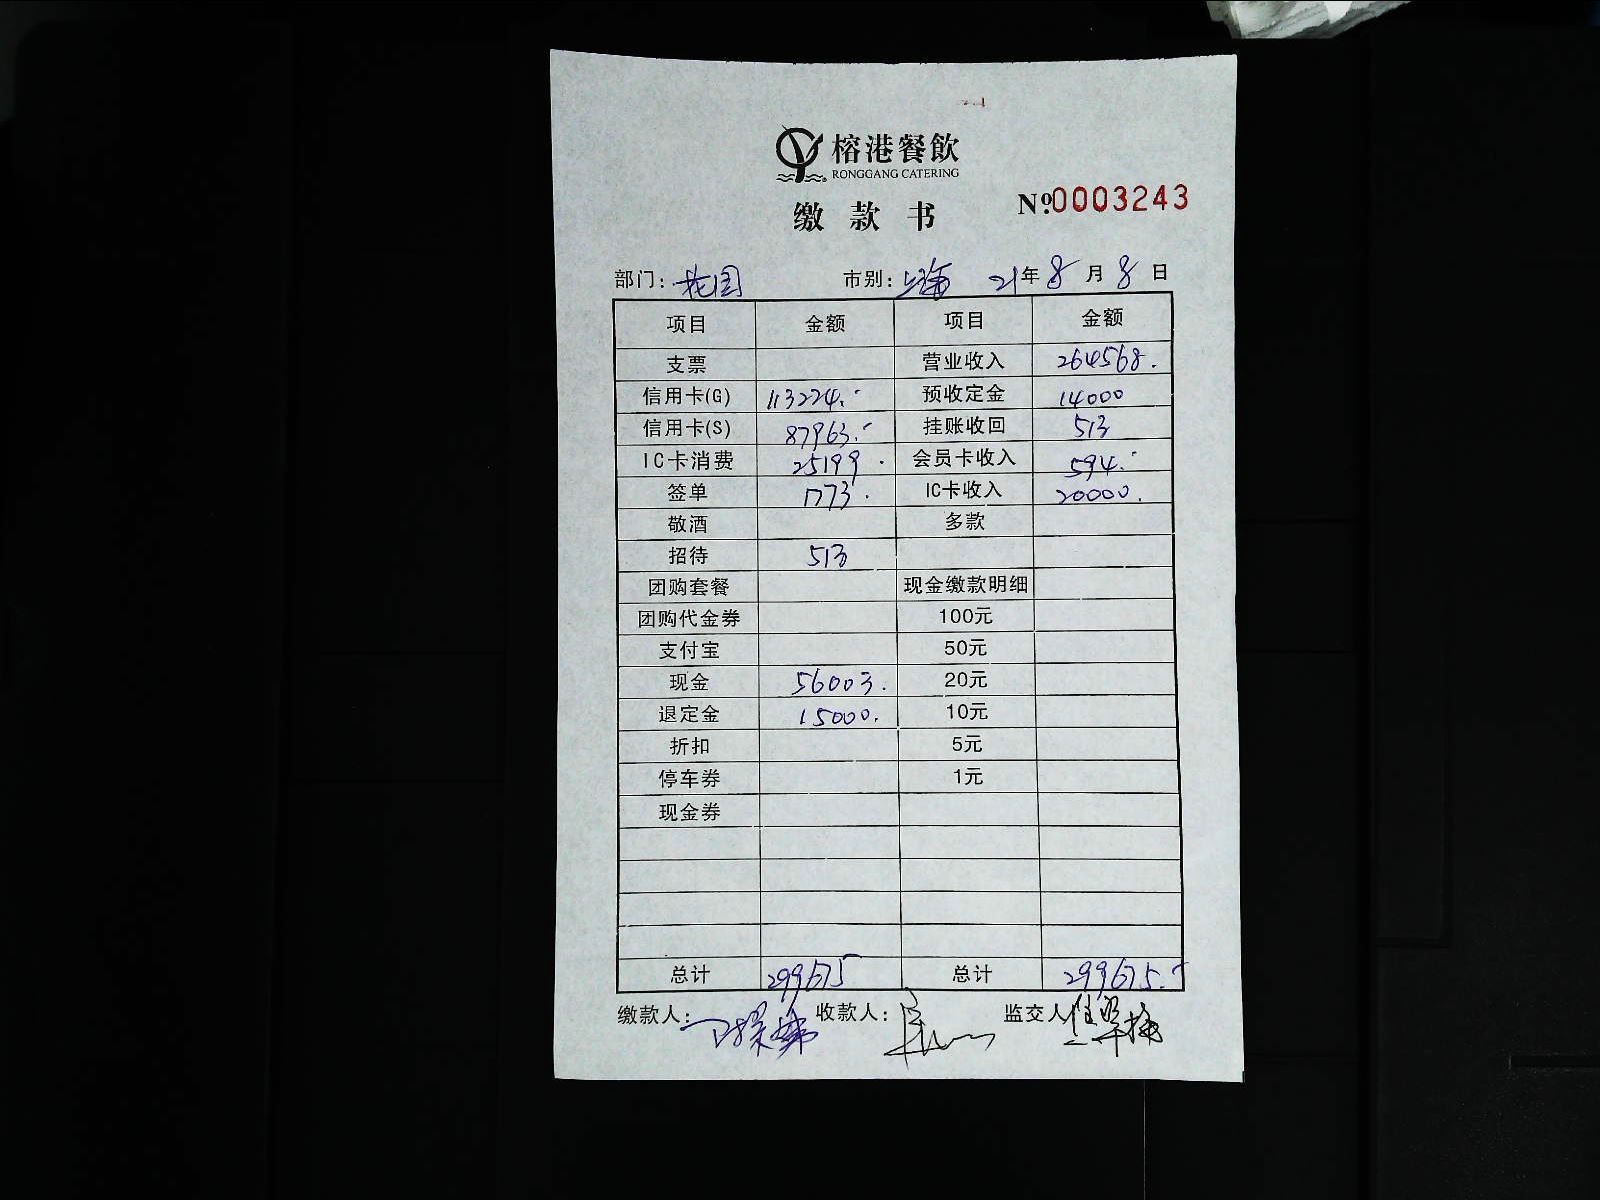 榕港餐飲
RONGGANG CATERING
缴款书 №0003243
部门: 花园 市别: 上海 21年 8月 8日
项目 金额 项目 金额
支票 营业收入 264568.
信用卡(G) 113224.- 预收定金 14000
信用卡(S) 87963.- 挂账收回 513
IC卡消费 25199. 会员卡收入 594.-
签单 1773. IC卡收入 20000.
敬酒 多款
招待 513
团购套餐 现金缴款明细
团购代金券 100元
支付宝 50元
现金 56003. 20元
退定金 15000. 10元
折扣 5元
停车券 1元
现金券
总计 299675 总计 299675.-
缴款人: 收款人: 监交人